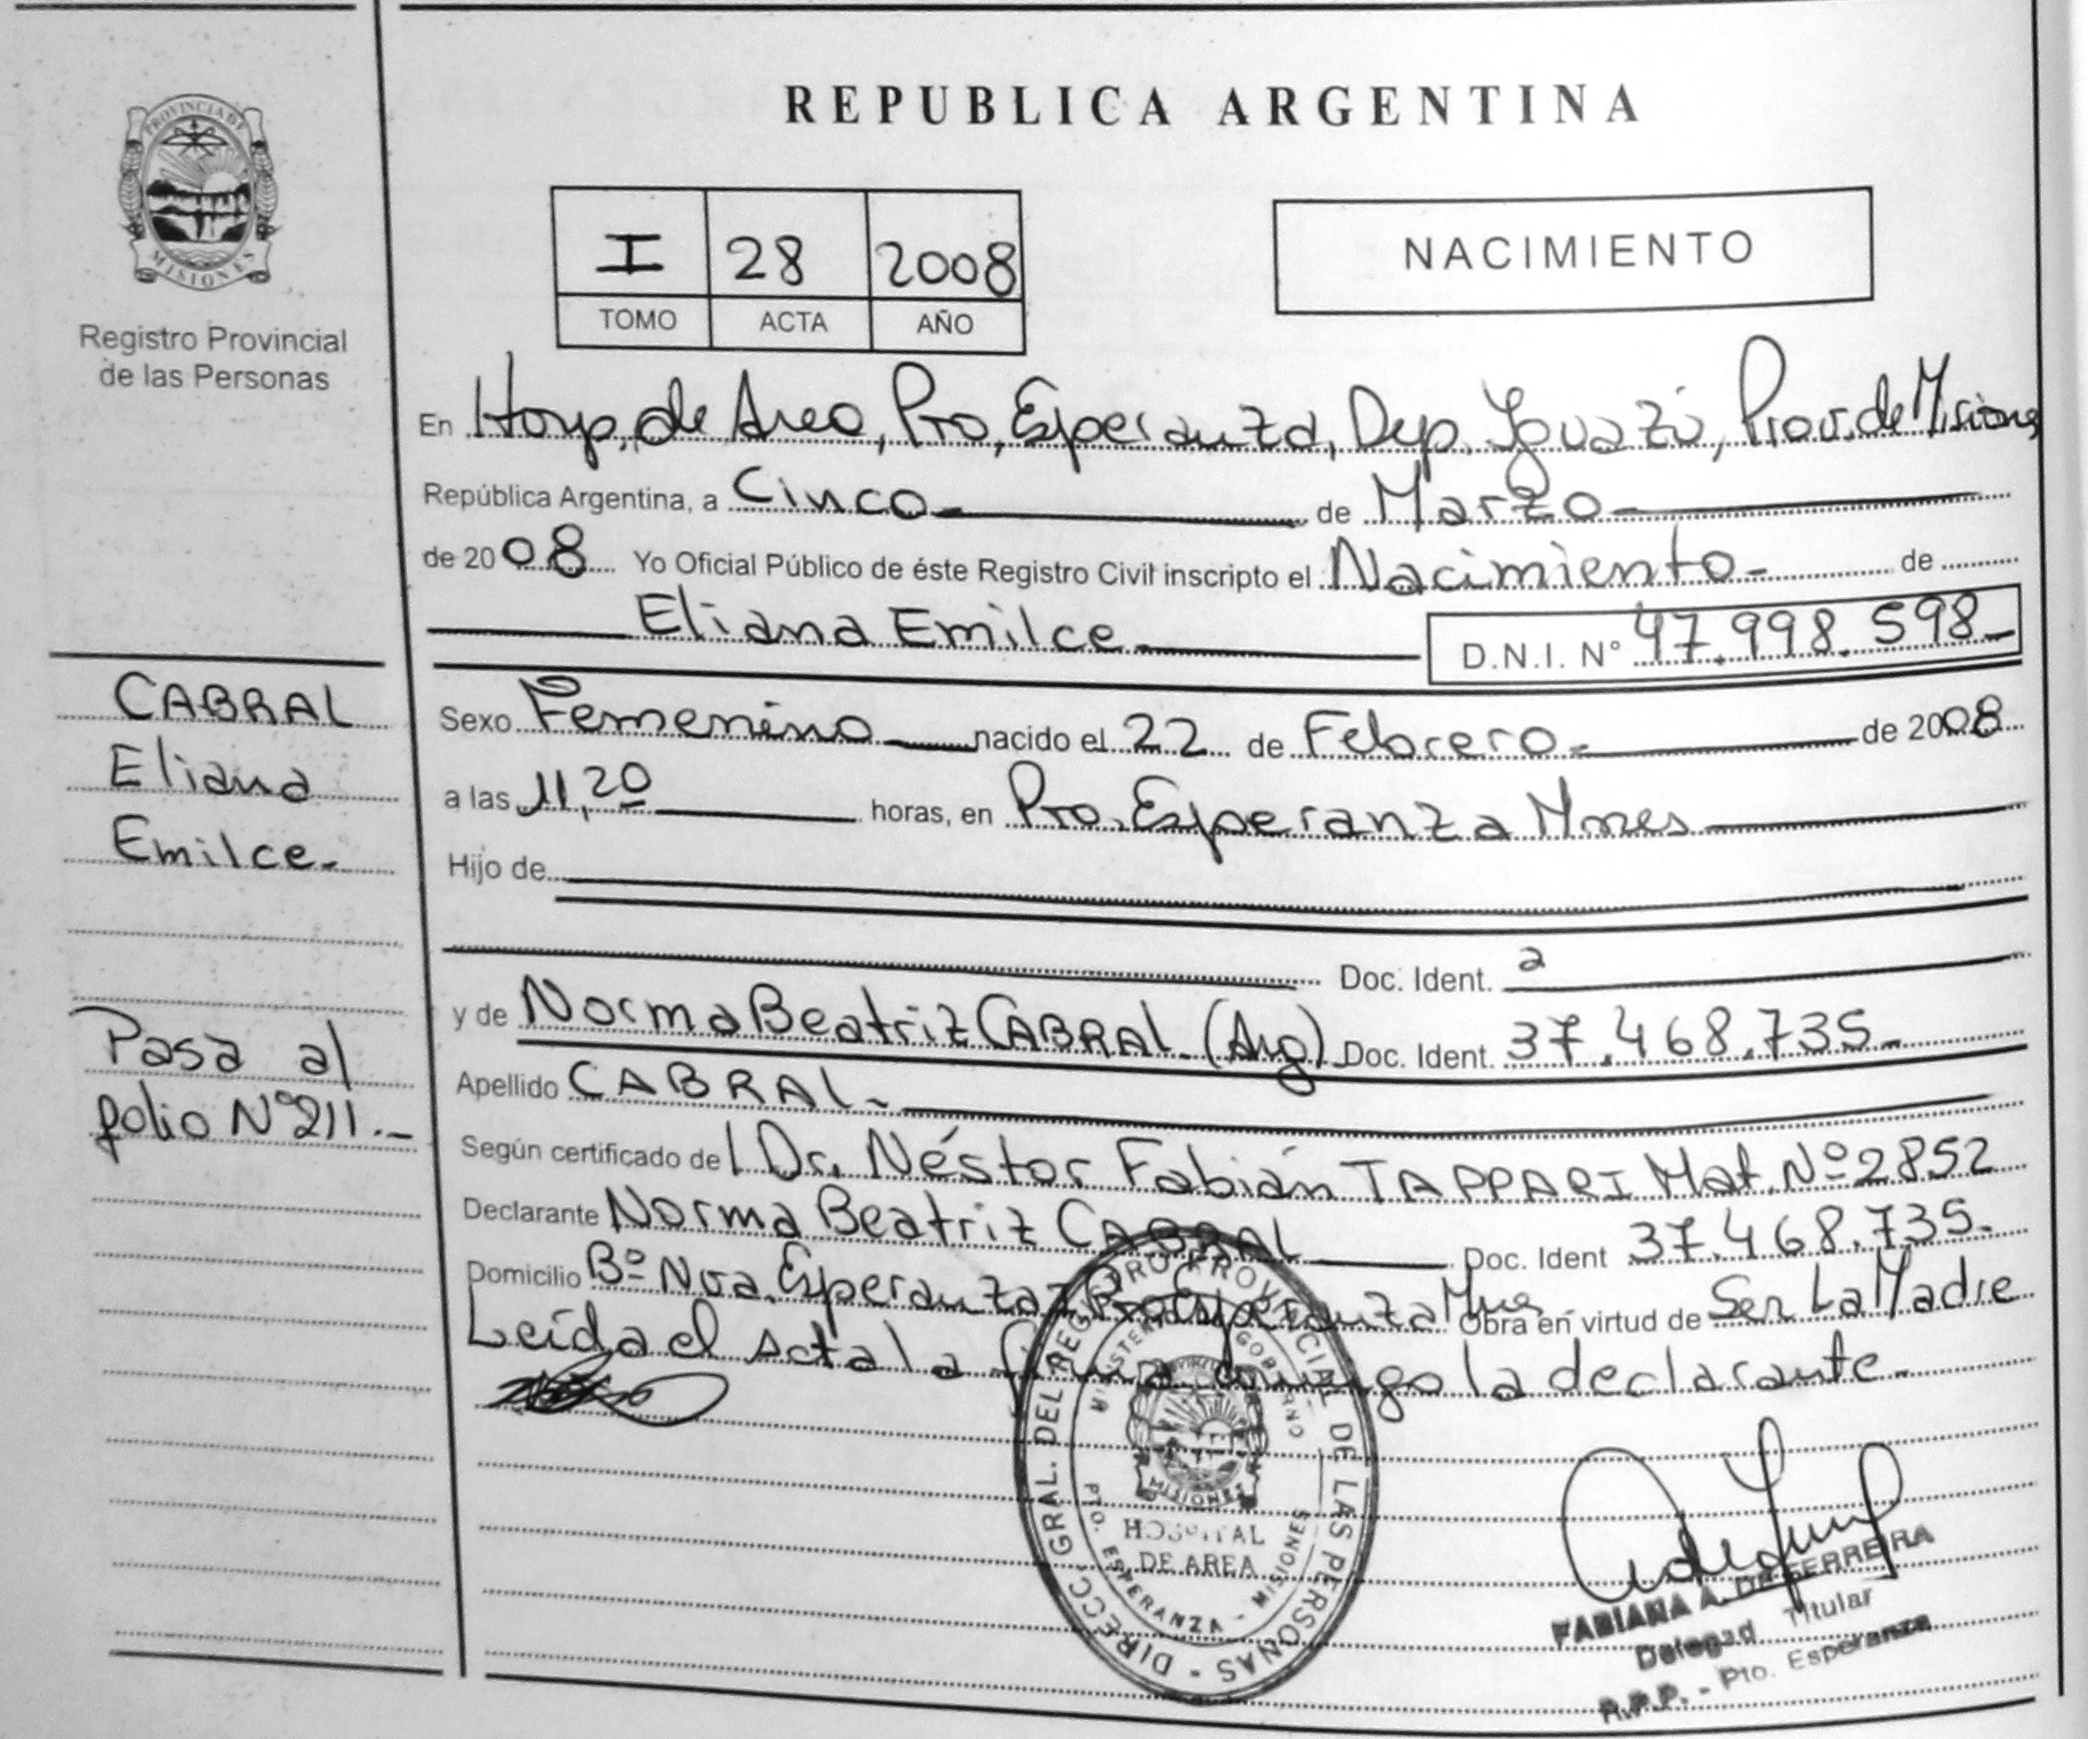 PROVINCIA DE
MISIONES
Registro Provincial
de las Personas
REPUBLICA ARGENTINA
I 28 2008
TOMO ACTA AÑO
NACIMIENTO
En Hosp. de Area, Pto, Esperanza, Dep. Iguazú, Prov. de Misiones
República Argentina, a Cinco de Marzo
de 2008 Yo Oficial Público de éste Registro Civil inscripto el Nacimiento - de
Eliana Emilce D.N.I. N° 47.998.598-
CABRAL
Eliana
Emilce.-
Sexo Femenino nacido el 22 de Febrero.- de 2008
a las 11,20 horas, en Pto. Esperanza Mnes
Hijo de
Doc. Ident. a
y de Norma Beatriz CABRAL. (Arg) Doc. Ident. 37.468.735.-
Pasa al
folio Nº 211.-
Apellido CABRAL.-
Según certificado de l Dr. Néstor Fabián TAPPARI Mat. Nº 2852
Declarante Norma Beatriz CABRAL Doc. Ident 37.468.735.
Domicilio Bº Nva. Esperanza Pto Esperanza Obra en virtud de Ser La Madre
Leída el acta la firma conmigo la declarante.-
DIRECC. GRAL. DEL REGISTRO PROVINCIAL DE LAS PERSONAS -
MINISTERIO GOBIERNO
MISIONES
HOSPITAL
DE AREA
PTO. ESPERANZA - MISIONES
FABIANA A. DE FERREIRA
Delegad Titular
R.P.P. - Pto. Esperanza